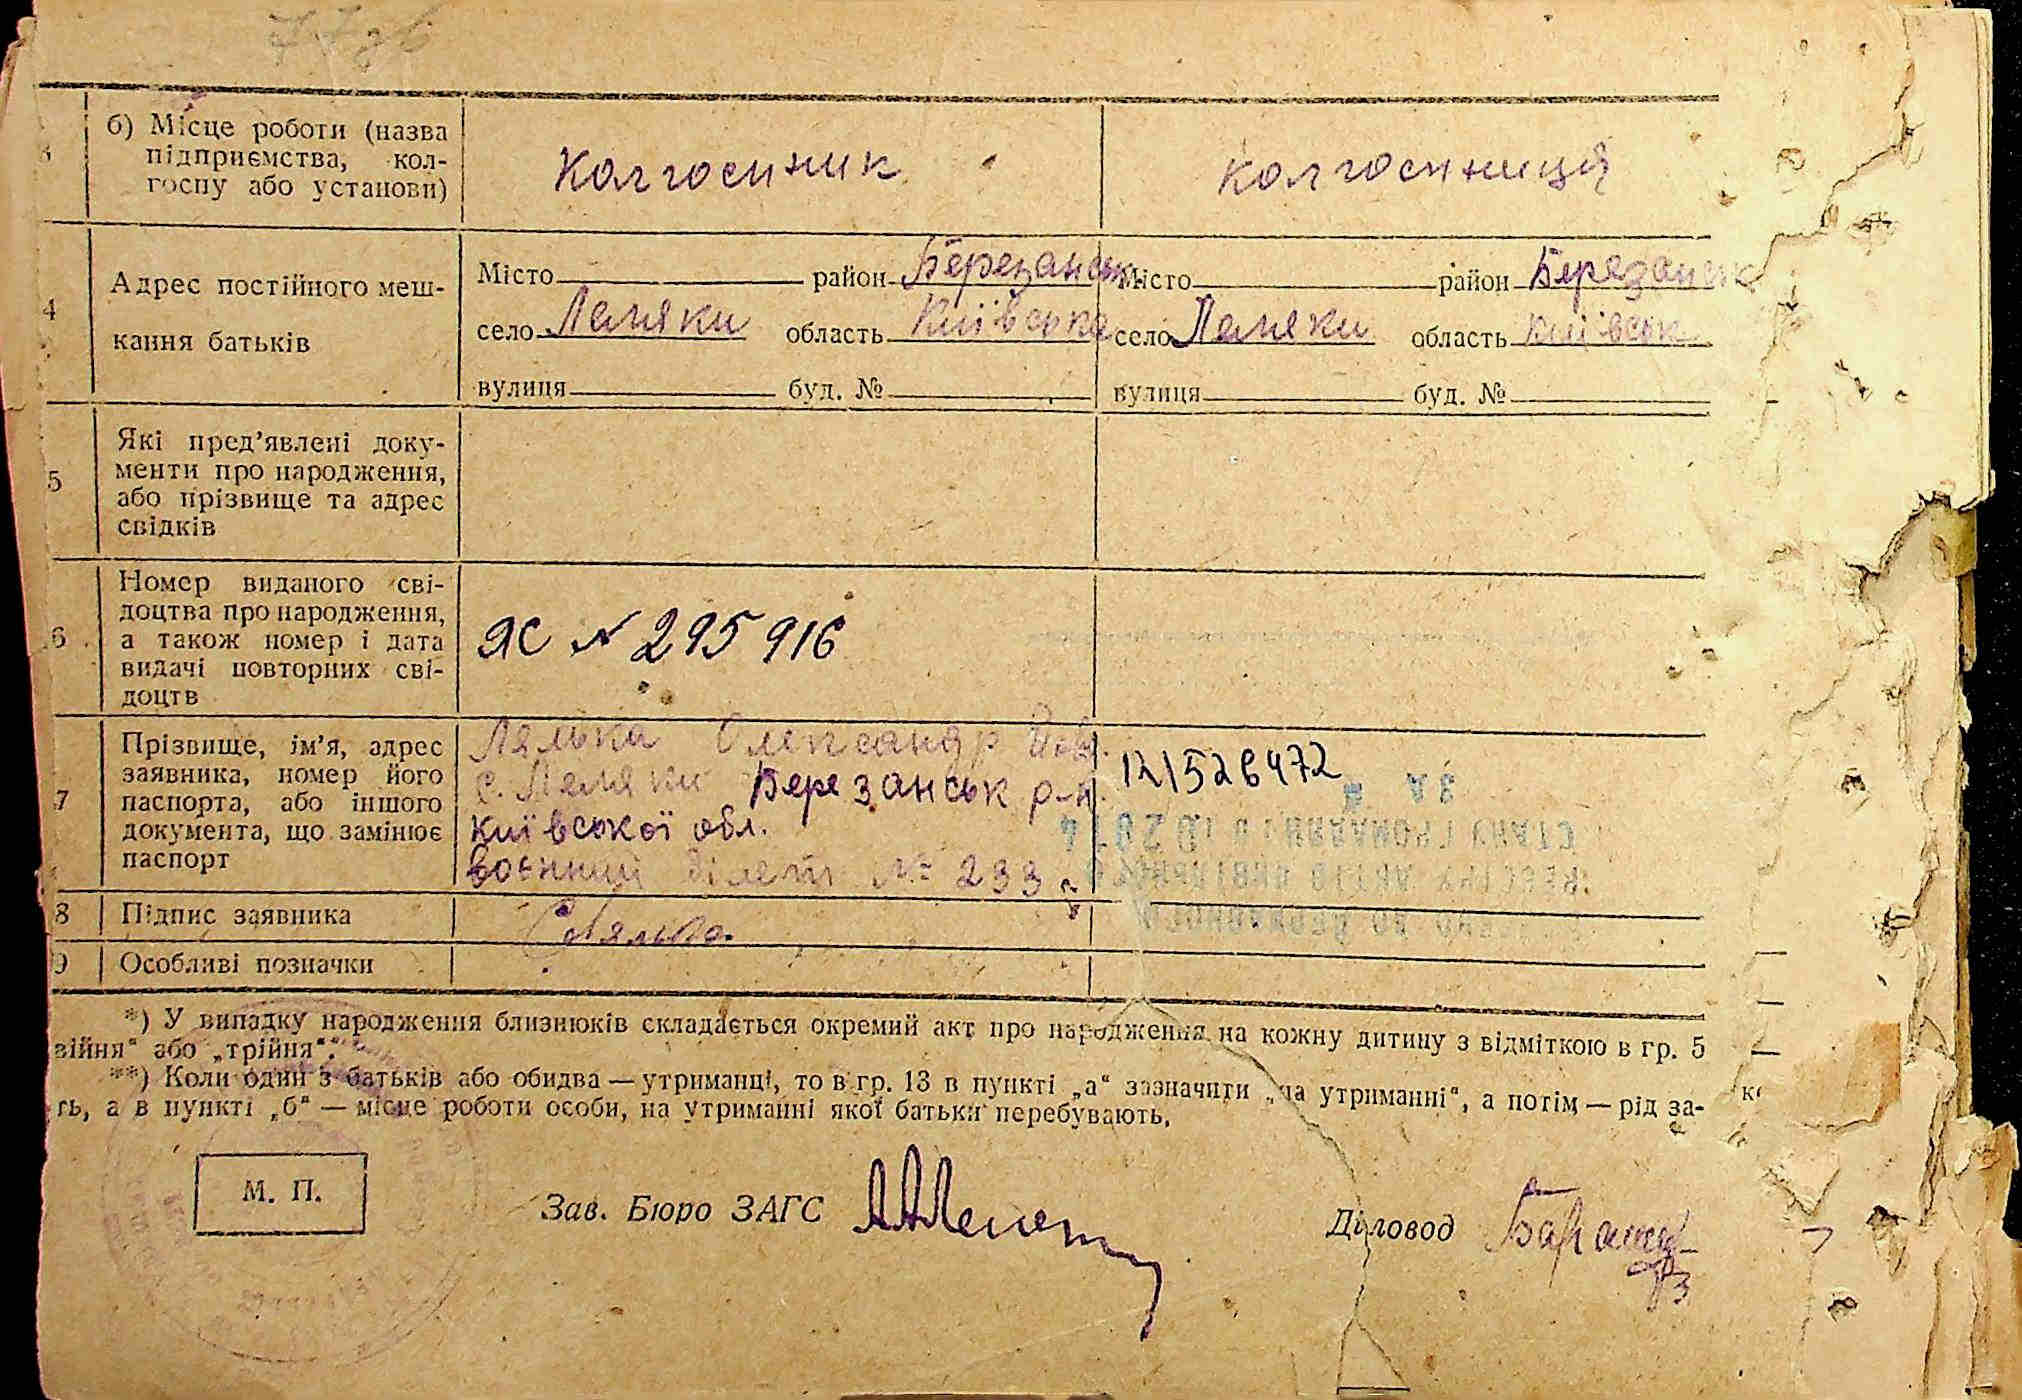 77зв
б) Місце роботи (назва
підприємства, кол-
госпу або установи)
Колгоспник
колгоспниця
4
Адрес постійного меш-
кання батьків
Місто район Березанськ
село Леляки область Київська
вулиця буд. №
Місто район Березанськ
село Леляки область Київськ
вулиця буд. №
5
Які пред’явлені доку-
менти про народження,
або прізвище та адрес
свідків
6
Номер виданого сві-
доцтва про народження,
а також номер і дата
видачі повторних сві-
доцтв
ЯС № 295916
7
Прізвище, ім’я, адрес
заявника, номер його
паспорта, або іншого
документа, що замінює
паспорт
Лялька Олександр
с. Леляки Березанськ р-н
Київської обл.
воєнний білет № 233
121526472
8
Підпис заявника
9
Особливі позначки
*) У випадку народження близнюків складається окремий акт про народження на кожну дитину з відміткою в гр. 5
війня“ або „трійня“.
**) Коли один з батьків або обидва — утриманці, то в гр. 13 в пункті „а“ зазначити „на утриманні“, а потім — рід за-
ть, а в пункті „б“ — місце роботи особи, на утриманні якої батьки перебувають.
М. П.
Зав. Бюро ЗАГС
Діловод